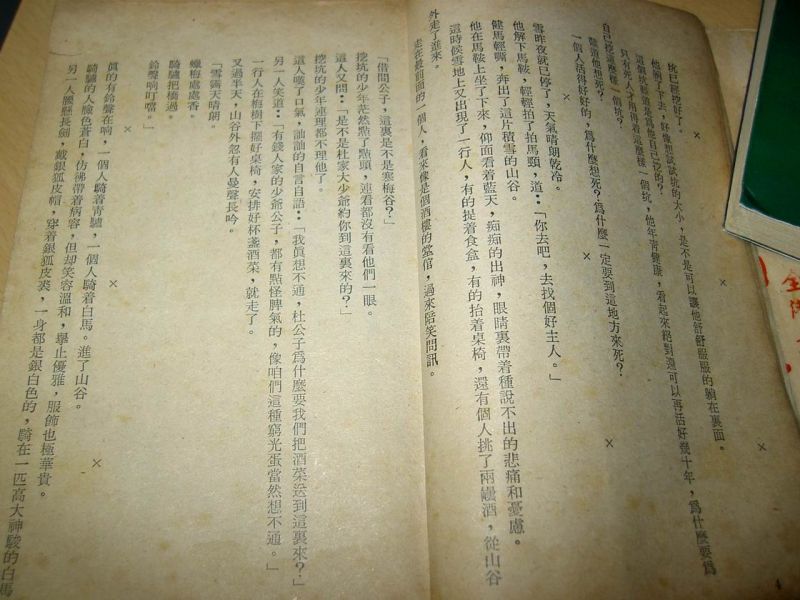 坑已經挖好了。
他躺了下去，好像想試試坑的大小，是不是可以讓他舒舒服服的躺在裏面。
這個坑難道是爲他自己挖的？
只有死人才用得着這麼樣一個坑，他年青健康，看起來絕對還可以再活好幾十年，爲什麼要爲
自己挖這麼樣一個坑？
難道他想死？
一個人活得好好的，爲什麼想死？爲什麼一定要到這地方來死？
×　×　×
雪昨夜就已停了，天氣晴朗乾冷。
他解下馬鞍，輕輕拍了拍馬頸，道：「你去吧，去找個好主人。」
健馬輕嘶，奔出了這片積雪的山谷。
他在馬鞍上坐了下來，仰面看着藍天，痴痴的出神，眼睛裏帶着種說不出的悲痛和憂慮。
這時候雪地上又出現了一行人，有的提着食盒，有的抬着桌椅，還有個人挑了兩罎酒，從山谷
外走了進來。
走在最前面的一個人，看來像是個酒樓的堂倌，過來陪笑問訊。
「借問公子，這裏是不是寒梅谷？」
挖坑的少年茫然點了點頭，連看都沒有看他們一眼。
這人又問：「是不是杜家大少爺約你到這裏來的？」
挖坑的少年連理都不理他了。
這人嘆了口氣，訕訕的自言自語：「我眞想不通，杜公子爲什麼要我們把酒菜送到這裏來？」
另一人笑道：「有錢人家的少爺公子，都有點怪脾氣的，像咱們這種窮光蛋當然想不通。」
一行人在梅樹下擺好桌椅，安排好杯盞酒菜，就走了。
又過半天，山谷外忽有人曼聲長吟。
「雪霽天晴朗，
蠟梅處處香。
騎驢把橋過，
鈴聲响叮噹。」
×　×　×
眞的有鈴聲在响，一個人騎着青驢，一個人騎着白馬。進了山谷。
騎驢的人臉色蒼白，仿彿帶着病容，但却笑容溫和，舉止優雅，服飾也極華貴。
另一人腰懸長劍，戴銀狐皮帽，穿着銀狐皮裘，一身都是銀白色的，騎在一匹高大神駿的白馬
4